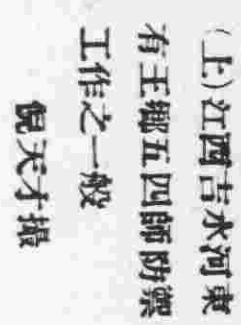 (上)江西吉水河東
有王鄉五四師防禦
工作之一般
倪天才攝